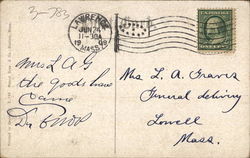 3-783
LAWRENCE
JUN 24
11-30A
1909
MASS.
Mrs L A G
the goods have
Came
Dr
Mrs L. A. Graves
General delivery
Lowell
Mass.